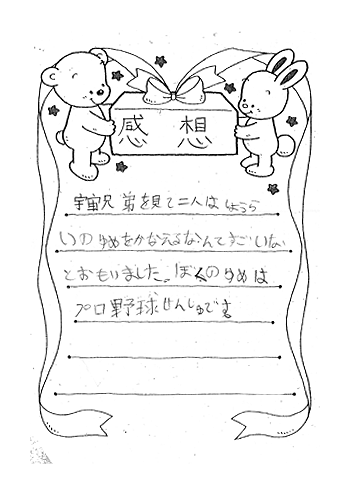 感想
宇宙兄弟を見て二人はしょうら
いのゆめをかなえるなんてすごいな
とおもりました。ぼくのゆめは
プロ野球せんしゅです